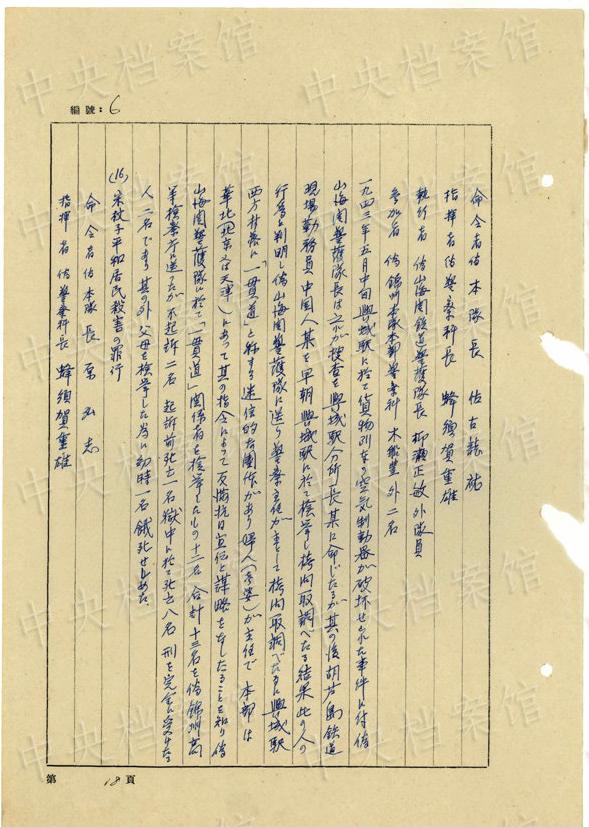 中央档案馆
編號：6
命令者伪本隊長 佐古龍祐
指揮者伪警察科長 蜂須賀重雄
執行者 伪山海関鉄道警護隊長 柳瀬正敏外隊員
参加者 伪錦州本隊本部警察科 木 外二名
一九四三年五月中旬興城駅に於て貨物列車の空気制動器が破坏せられた事件に付伪
山海関警護隊長は之が捜査を興城駅分所長某に命じたるが其の後胡芦島鉄道
現場勤務員中国人某を早朝興城駅に於て検挙し拷問取調べたる結果此の人の
行為と判明し伪山海関警護隊に送り警察主任が主として拷問取調べたるに興城駅
西方井 に「一貫道」と称する迷信的な團体があり婦人（ 婆）が主任で 本部は
華北（北京又は天津）にあって其の指令によって反満抗日宣伝と謀略をなしたることを知り伪
山海関警護隊に於て「一貫道」関係者を検挙したもの十二名 合計十三名を伪錦州高
等検察庁に送したが不起訴二名 起訴前死亡一名獄中に於て死亡八名 刑を完全に受けた
人二名であり其の外父母を検挙した為に幼時一名餓死せしめた、
(16) 朱杖子平和居民殺害の罪行
命令者伪本隊長 原弘志
指揮者伪警察科長 蜂須賀重雄
第 18 頁